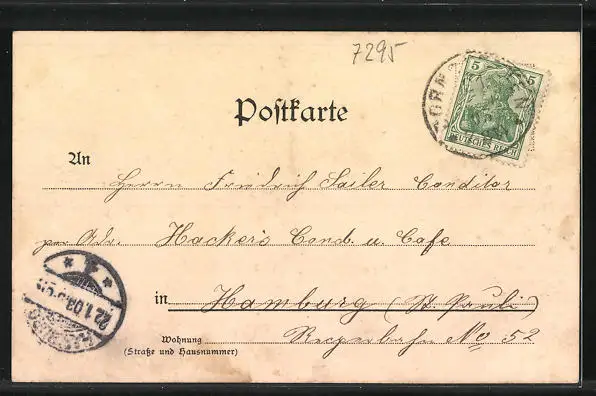 7295
Postkarte
5 5
DEUTSCHES REICH
An
Herrn Friedrich Sailer Conditor
per Adr. Hacker's Cond. u. Cafe
in Hamburg (St. Pauli)
Wohnung
(Straße und Hausnummer)
Reeperbahn No 52